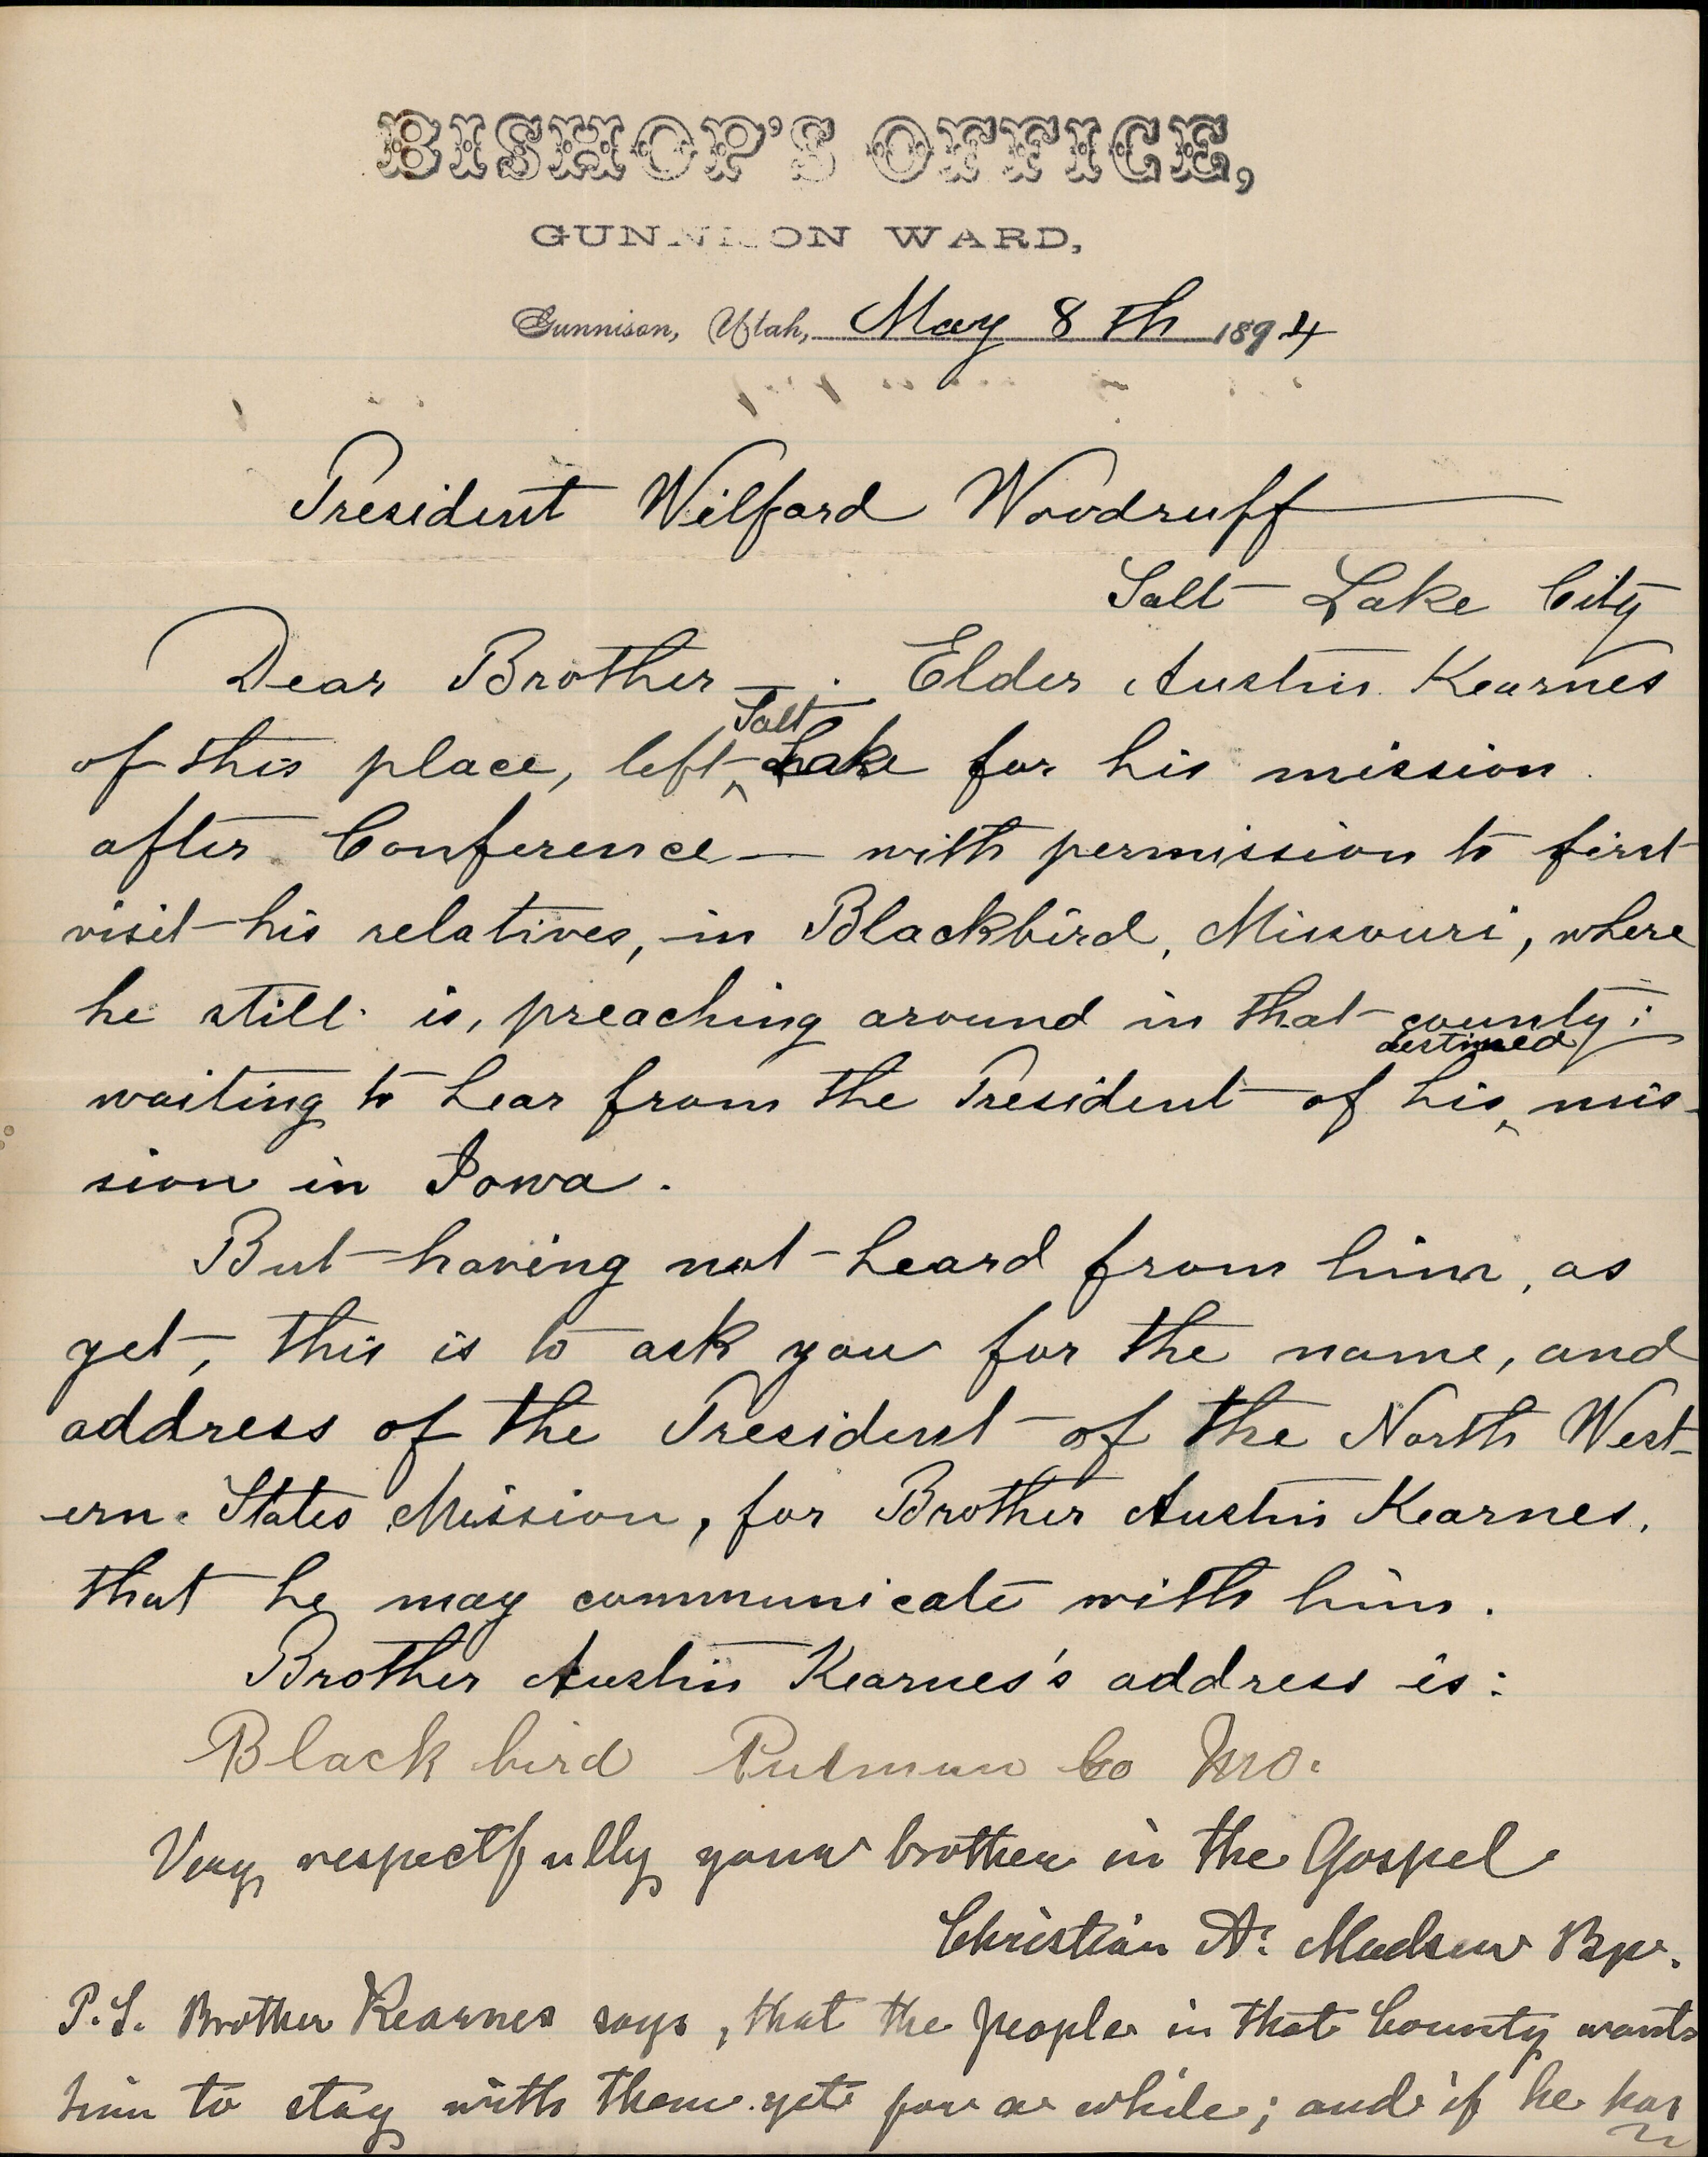 BISHOP'S OFFICE,
GUNNISON WARD,
Gunnison, Utah, May 8th 1894
President Wilford Woodruff
Salt Lake City
Dear Brother —. Elder Austin Kearnes
of this place, left Salt Lake for his mission
after Conference — with permission to first
visit his relatives, in Blackbird, Missouri, where
he still is, preaching around in that county;
waiting to hear from the President of his destined mis-
sion in Iowa.
But having not heard from him, as
yet, this is to ask you for the name, and
address of the President of the North West-
ern States Mission, for Brother Austin Kearnes,
that he may communicate with him.
Brother Austin Kearnes's address is:
Black bird Putmun Co Mo.
Very respectfully your brother in the Gospel
Christian A. Madsen Bp.
P.S. Brother Kearnes says, that the people in that County wants
him to stay with them yet for a while; and if he has